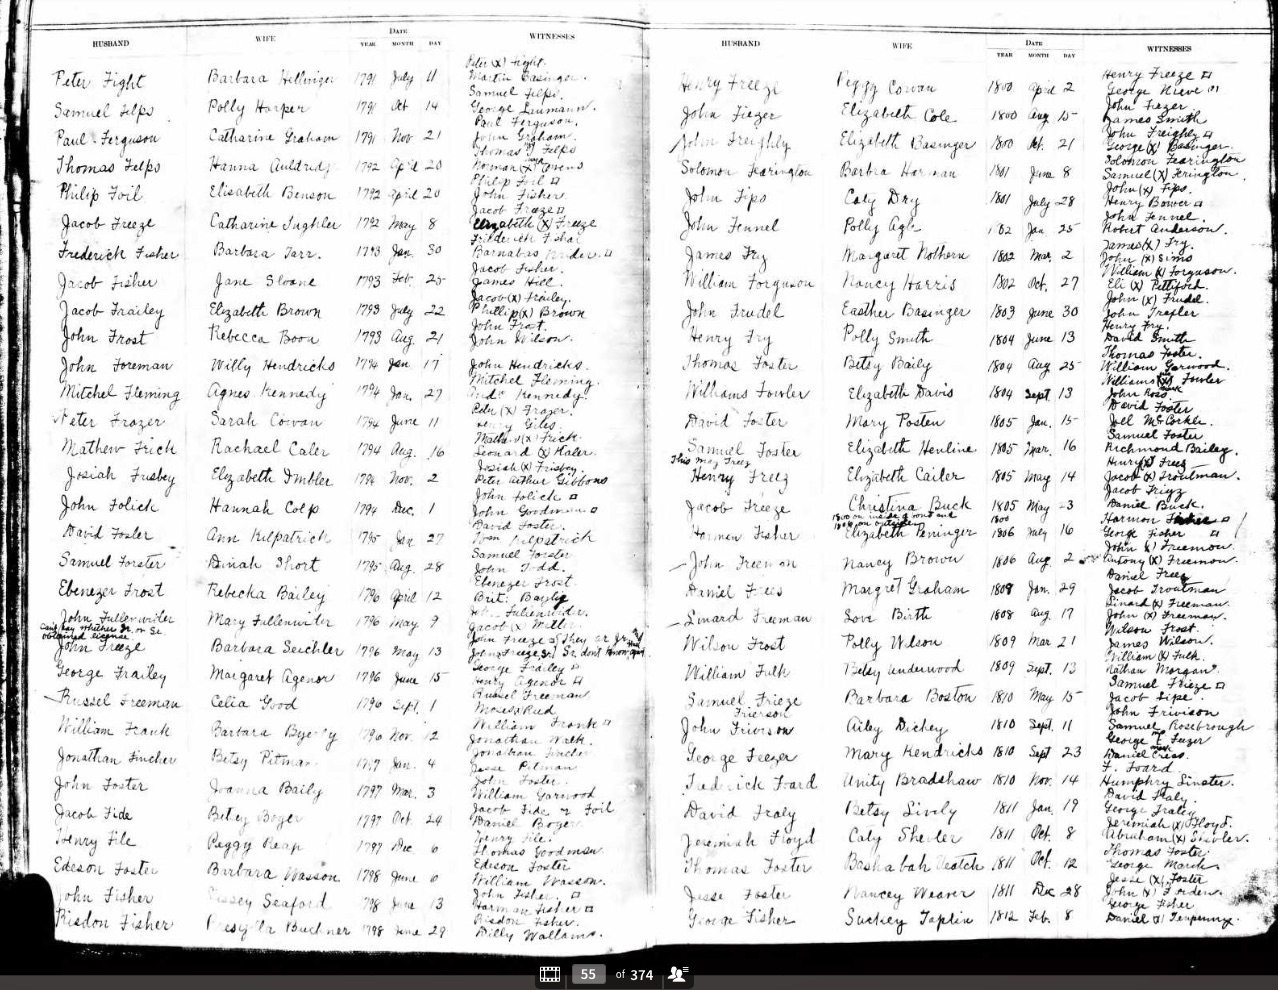 HUSBAND WIFE DATE WITNESSES
YEAR MONTH DAY
Peter (X) Fight.
Peter Fight Barbara Hellniger 1791 July 11 Martin Basinger.
Samuel Felps.
Samuel Felps Polly Harper 1791 Oct 14 George Laumann.
Paul Ferguson.
Paul Ferguson Catharine Graham 1791 Nov 21 John Graham.
Thomas Felps
Thomas Felps Hanna 1792 April 20
Philip Foil
Philip Foil Elisabeth Benson 1792 April 20 John Fisher
Jacob Freeze
Jacob Freeze Catharine 1792 May 8 Elizabeth (X) Freeze
Frederick Fisher Barbara Tarr. 1793 Jan. 30 Barnabas
Jacob Fisher.
Jacob Fisher Jane Sloane 1793 Feb. 25 James Hill.
Jacob (X) Frailey.
Jacob Frailey Elizabeth Brown 1793 July 22 Phillip (X) Brown
John Frost.
John Frost Rebecca Boon 1793 Aug. 21 John Wilson.
John Foreman Willy Hendricks 1794 Jan 17 John Hendricks.
Mitchel Fleming.
Mitchel Fleming Agnes Kennedy 1794 Jan. 27 Kennedy.
Peter (X) Frazer.
Peter Frazer Sarah Cowan 1794 June 11 Henry Giles.
Mathew (X) Frick.
Mathew Frick Rachael Caler 1794 Aug. 16 Leonard (X) Kaler.
Josiah (X) Frisbey.
Josiah Frisbey Elizabeth Imbler 1794 Nov. 2 Peter Arthur Gibbons
John Folick
John Folick Hannah Colp 1794 Dec. 1 John Goodman
David Foster.
David Foster Ann Kilpatrick 1795 Jan 27 Kilpatrick
Samuel Forster
Samuel Forster Dinah Short 1795 Aug. 28 John Todd.
Ebenezer Frost.
Ebenezer Frost Rebecka Bailey 1796 April 12 Brit. Bayley
John Fullenwider Mary Fullenwiter 1796 May 9 Jacob (X)
Can't say whether Jr. or Sr.
obtained license.
John Freeze Barbara Seichler 1796 May 13 John Freeze Sr.
George Frailey
George Frailey Margaret Agenor 1796 June 15 Henry Agenor
Russel Freeman
Russel Freeman Celia Good 1796 Sept. Moses Reed
William Frank
William Frank Barbara 1796 Nov. 12 Jonathan
Jonathan Fincher
Jonathan Fincher Betsy Pitman 1797 Jan. 4 Jesse Pitman
John Foster.
John Foster Joanna Baily 1797 Mar. 3 William Garwood
Jacob Fide Foil
Jacob Fide Betsy Boger 1797 Oct. 24 Daniel Boger.
Henry File.
Henry File Peggy Reap 1797 Dec 6 Thomas Goodman.
Edeson Foster
Edeson Foster Barbara Wasson 1798 June 6 William Wasson.
John Fisher.
John Fisher Seaford 1798 June 13 Harman Fisher
Risdon Fisher.
Risdon Fisher Buckner 1798 June 29 Billy
HUSBAND WIFE DATE WITNESSES
YEAR MONTH DAY
Henry Freeze
Henry Freeze Peggy Cowan 1800 April 2 George
John Fiezer
John Fiezer Elizabeth Cole 1800 Aug 15 James Smith
John Freighly
John Freighly Elizabeth Basinger 1800 Oct. 21 George (X) Basinger.
Solomon Fearington
Solomon Fearington Barbra Harman 1801 June 8 Samuel (X) Ferington.
John (X) Fips.
John Fips Caty Dry 1801 July 28 Henry Bower
John Fennel.
John Fennel Polly 1802 Jan. 25 Robert Anderson.
James (X) Fry.
James Fry Margaret Nothern 1802 Mar. 2 John (X) Sims
William (X) Forguson.
William Forguson Nancy Harris 1802 Oct. 27 Eli (X) Pettiford.
John (X) Frudel.
John Frudel Easther Basinger 1803 June 30 John Trexler
Henry Fry.
Henry Fry Polly Smith 1804 June 13 David Smith
Thomas Foster.
Thomas Foster Betsy Baily 1804 Aug 25 William Garwood
Williams (X) Fowler
Williams Fowler Elizabeth Davis 1804 Sept 13 John Ross
David Foster
David Foster Mary Posten 1805 Jan. 15 Joel McCorkle.
Samuel Foster
Samuel Foster Elizabeth Henline 1805 Mar. 16 Richmond Bailey.
This may Freez
Henry (X) Freez
Henry Freez Elizabeth Cailer 1805 May 14 Jacob (X) Troutman.
Jacob Freeze Christina Buck 1805 May 23 Daniel Buck.
1800 on inside
1806 on outside 1800 Harmon Fisher
Harmon Fisher Elizabeth Peninger 1806 July 16 George Fisher
John (X) Freemon
John Freemon Nancy Brown 1806 Aug. 2 Antony (X) Freemon.
Daniel Frees
Daniel Frees Margret Graham 1808 Jan. 29 Jacob Troutman
Linard (X) Freeman.
Linard Freeman Love Birth 1808 Aug 17 John (X) Freeman.
Wilson Frost.
Wilson Frost Polly Wilson 1809 Mar 21 James Wilson.
William (X) Fulk.
William Fulk Betsy Underwood 1809 Sept. 13 Nathan Morgan.
Samuel Frieze
Samuel Frieze Barbara Boston 1810 May 15 Jacob Lipe.
Frierson
John Frierson Ailey Dickey 1810 Sept. 11 Samuel Rosebrough
George Feezer
George Feezer Mary Kendricks 1810 Sept 23 Daniel
F. Foard
Frederick Foard Unity Bradshaw 1810 Nov. 14 Humphry Linster.
David Fraly.
David Fraly Betsy Lively 1811 Jan. 19 George Fraley
Jeremiah (X) Floyd.
Jeremiah Floyd Caty 1811 Oct. 8 Abraham (X)
Thomas Foster
Thomas Foster Bashabah 1811 Oct. 12 George March.
Jesse (X) Foster
Jesse Foster Nancey Weaver 1811 Dec 28 John (X)
George Fisher
George Fisher Suckey Taplin 1812 Feb. 8 Daniel (X)
55 of 374